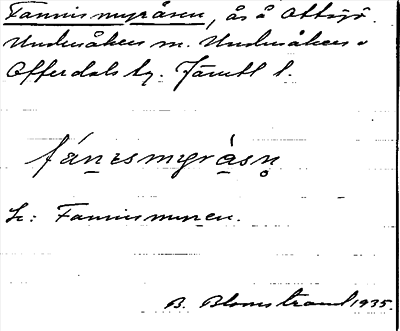 Fannismyråsen, ås å Ottsjö.
Undersåkers sn. Undersåkers o
Offerdals tg. Jämtl l.
fánismyràsn̥
Se: Fannismyren.
B. Blomstrand 1935.